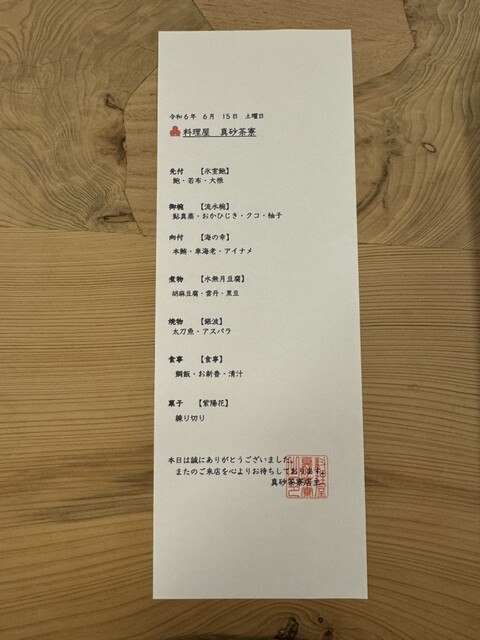 令和6年 6月 15日 土曜日
料理屋 真砂茶寮
先付 【氷室鮑】
鮑・若布・大根
御椀 【流水椀】
鮎真薯・おかひじき・クコ・柚子
向付 【海の幸】
本鮪・車海老・アイナメ
煮物 【水無月豆腐】
胡麻豆腐・雲丹・黒豆
焼物 【銀波】
太刀魚・アスパラ
食事 【食事】
鯛飯・お新香・清汁
菓子 【紫陽花】
練り切り
本日は誠にありがとうございました。
またのご来店を心よりお待ちしております。
真砂茶寮店主